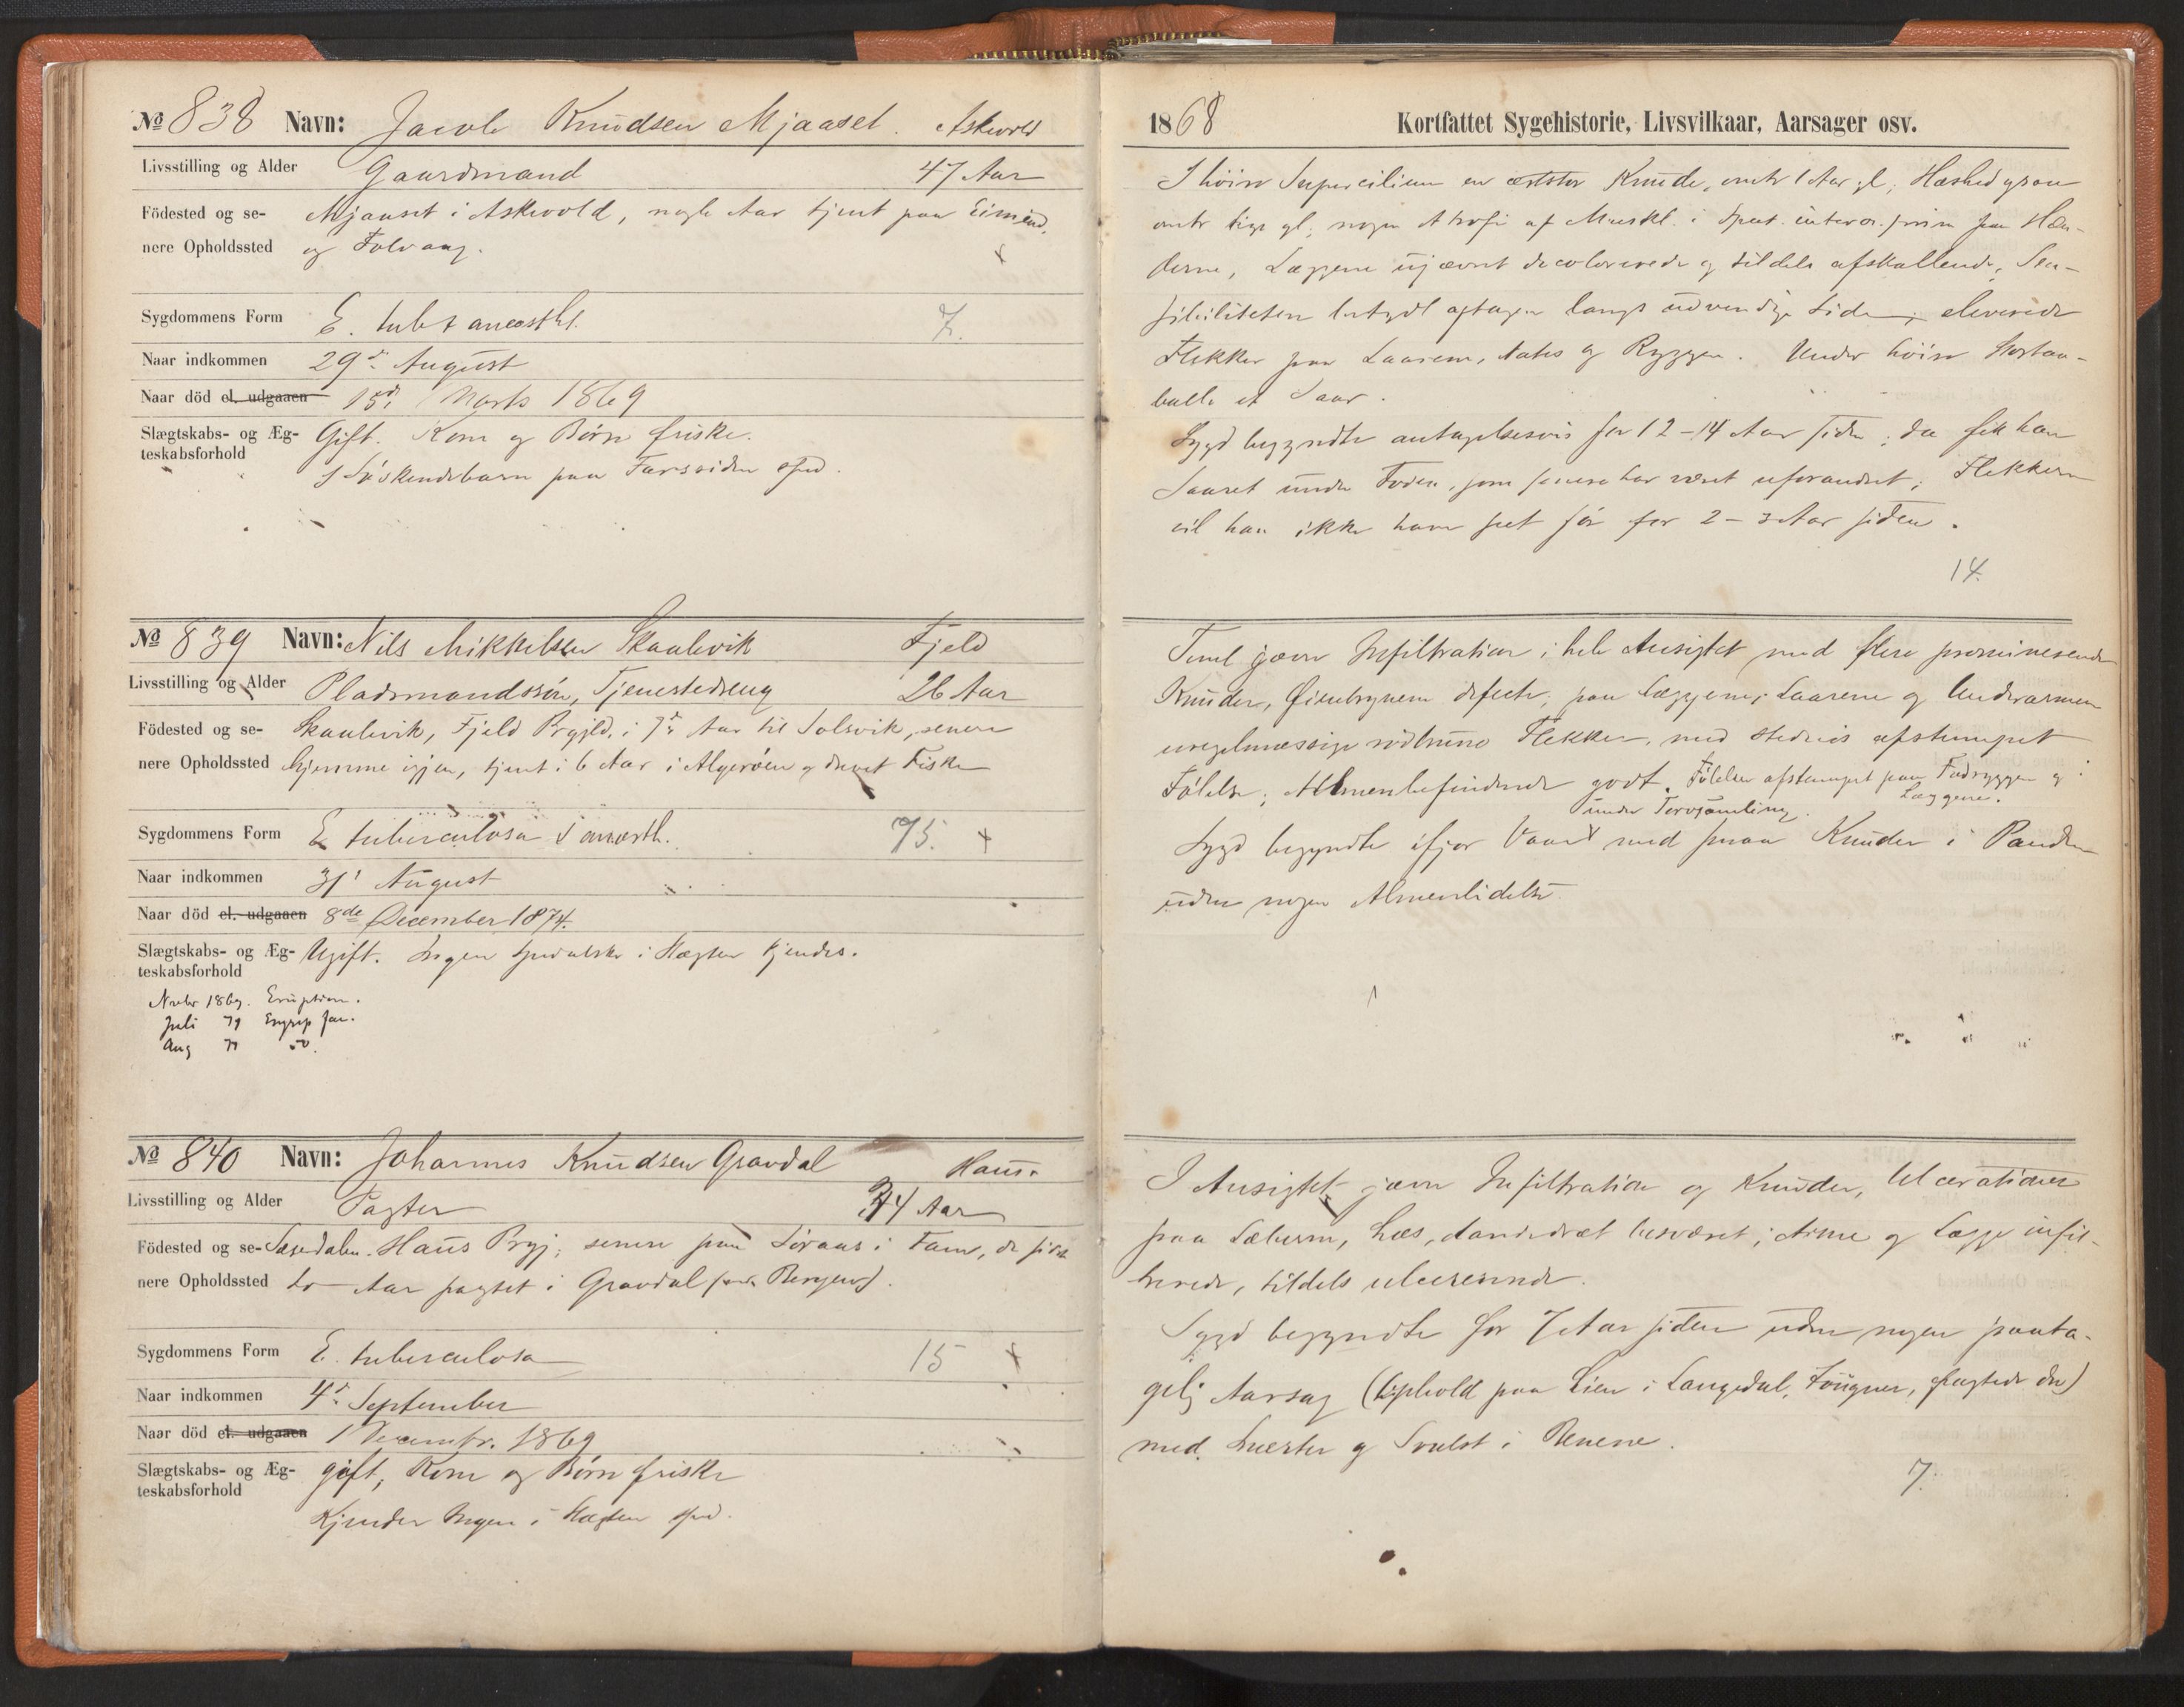 № 838 Navn: Jacob Knudsen Mjaaset. Askvold
Livsstilling og Alder Gaardmand 47 Aar
Födested og se- Mjaaset i Askevold, nogle Aar tjent paa Eimind.
nere Opholdssted og Folvaag.
Sygdommens Form E. tub & anæsth. 7.
Naar indkommen 29de August
Naar död el. udgaaen 15de Marts 1869
Slægtskabs- og Æg- Gift. Kone og Børn friske.
teskabsforhold 1 Søskendebarn paa Farssiden sped.
№ 839 Navn: Nils Mikkelsen Skaalevik Fjeld
Livsstilling og Alder Pladsmandssön, Tjenestedreng 26 Aar
Födested og se- Skaalevik, Fjeld Prgjld. i 7de Aar til Solsvik, senere
nere Opholdssted hjemme igjen, tjent i 6 Aar i Algeröen og drevet Fiske
Sygdommens Form E tuberculosa & anæsth. 75. +
Naar indkommen 31' August
Naar död el. udgaaen 8de December 1874.
Slægtskabs- og Æg- Ugift. Ingen spedalske i Slægten kjendes.
teskabsforhold
Novbr 1869. Eruption.
Juli 71 Erysip fac.
Aug 71 do.
№ 840 Navn: Johannes Knudsen Gravdal Haus.
Livsstilling og Alder Pagter 44 Aar
Födested og se- Haus Prgj; senere paa Söraas i Fane, de sidste
nere Opholdssted to Aar pagtet i Gravdal (ved Bergen).
Sygdommens Form E. tuberculosa 15 +
Naar indkommen 4de September
Naar död el. udgaaen 1 Decembr. 1869
Slægtskabs- og Æg- gift, Kone og Börn friske
teskabsforhold Kjender Ingen i Slægten sped.
1868 Kortfattet Sygehistorie, Livsvilkaar, Aarsager osv.
I höire Supercilium en ertstor Knude, omtr 1 Aar gl; Hæshed ogsaa
omtr lige gl; nogen Atrofi af Muskl. i Spat. inteross. prim paa Hæn-
derne, Læggene ujævnt decolorerede og tildels afskallende, Sen-
sibiliteten betydl aftagen langs udvendige Side; eleverede
Flekker paa Laarene, Nates og Ryggen. Under höire Stortaa-
balle et Saar.
Sygd begyndte antagelsesvis for 12-14 Aar siden; da fik han
Saaret under Foden, som senere har været uforandret; Flekkerne
vil han ikke have seet för for 2-3 Aar siden.
14.
Teml jævn Infiltration i hele Ansigtet med flere prominerende
Knuder, Øienbrynene defecte; paa Læggene, Laarene og Underarmene
uregelmæssige rödbrune Flekker, med stedvis afstumpet
Følelse; Almenbefindende godt. Fölelsen afstumpet paa Fodryggen og
Læggene.
under Torvsamling.
Sygd begyndte ifjor Vaar med smaa Knuder i Panden
uden nogen Almenlidelse
I Ansigtet jævn Infiltration og Knuder, Ulcerationer
paa Læberne, hæs, Aandedræt besværet; Arme og Lægge infil-
trerede, tildels ulcererende.
Sygd begyndte for 7 Aar siden uden nogen paata-
gelig Aarsag (Ophold paa Lien i Langedal, Fougner, pagtede der)
med Smerter og Svulst i Benene.
7.